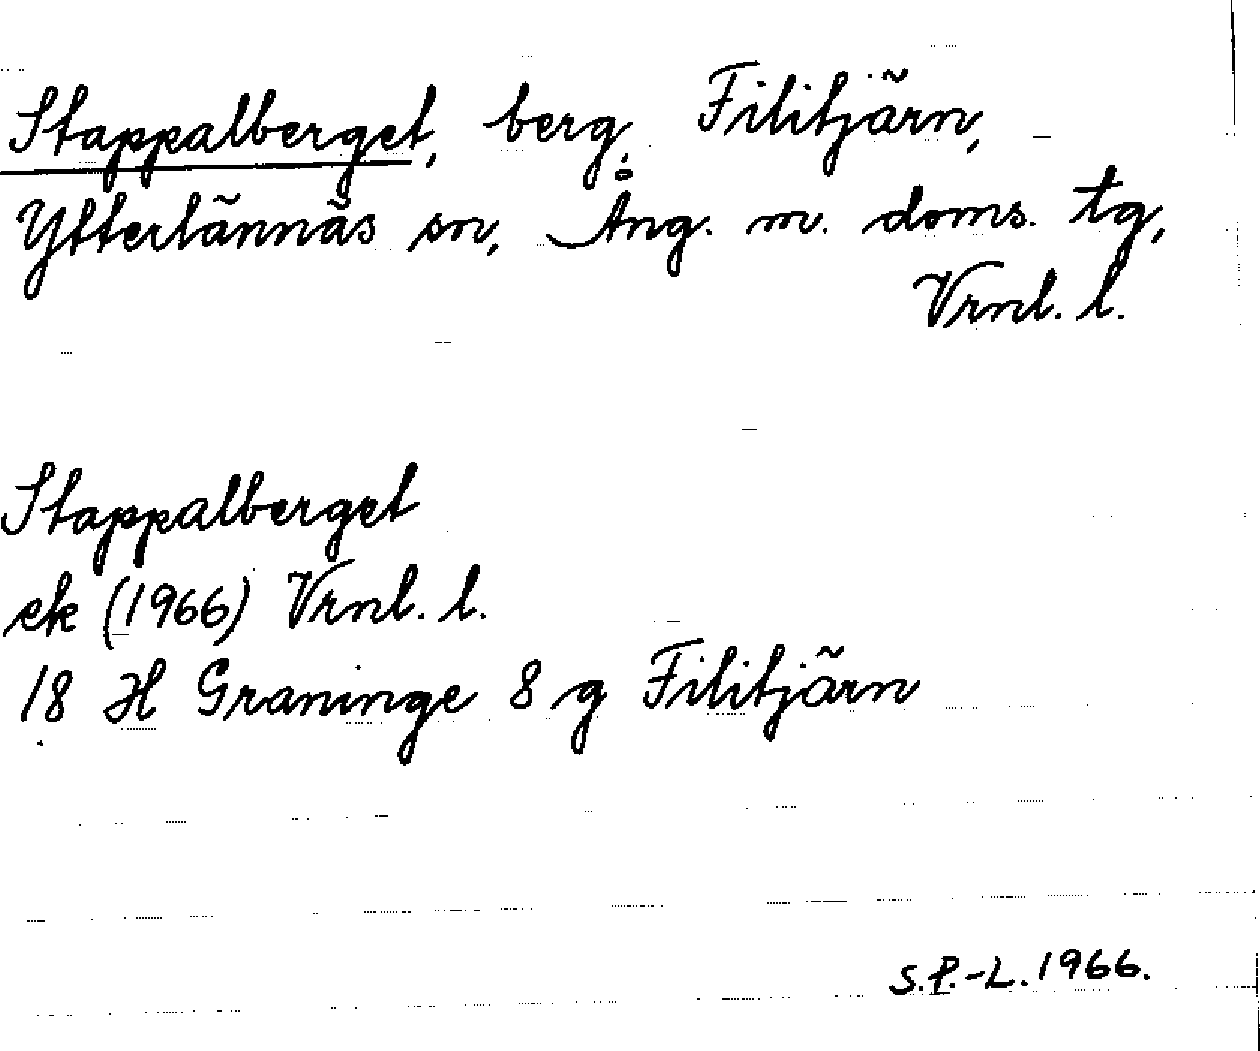 Stappalberget, berg, Filitjärn,
Ytterlännäs sn, Ång. m. doms. tg,
Vrnl. l.
Stappalberget
ek (1966) Vrnl. l.
18 H Graninge 8 g Filitjärn
S.P.-L. 1966.